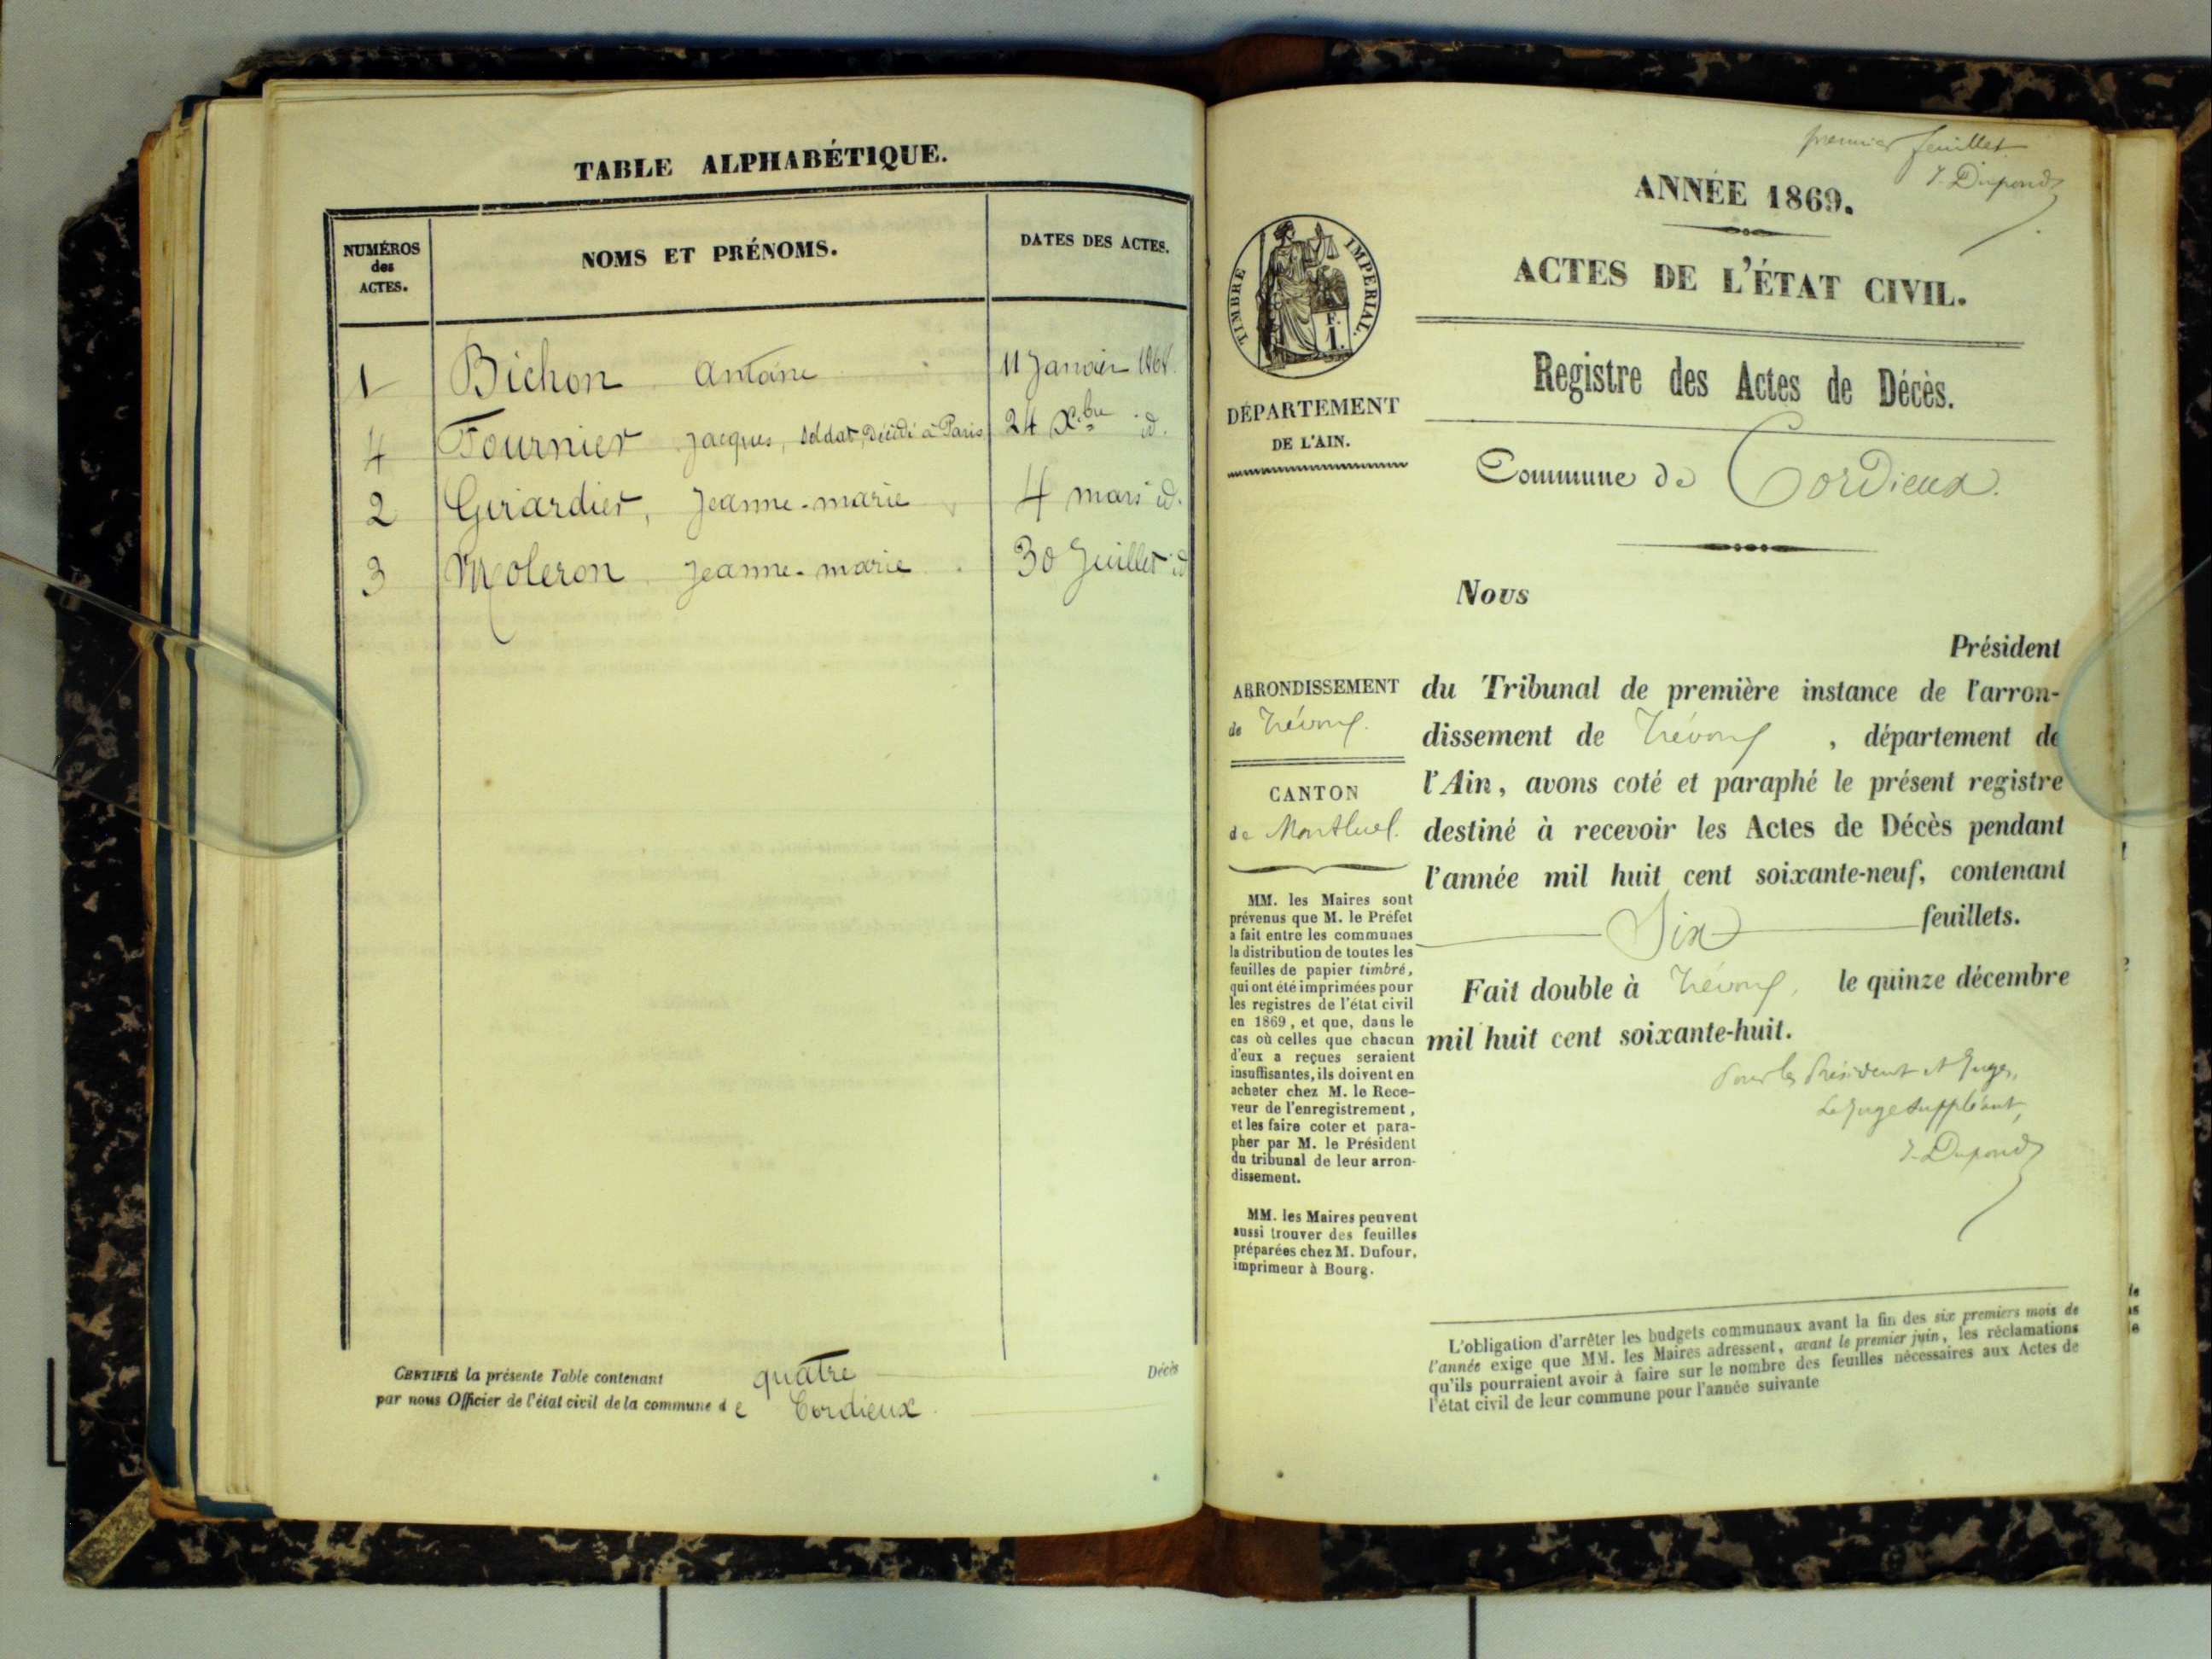 TABLE ALPHABÉTIQUE.
NUMÉROS
des
ACTES.
NOMS ET PRÉNOMS.
DATES DES ACTES.
1 Bichon Antoine 11 Janvier 1868.
4 Fournier Jacques, soldat, Décédé à Paris 24 Xbre id.
2 Girardier, Jeanne-marie 4 mars id.
3 Moleron Jeanne-marie. 30 Juillet id
CERTIFIÉ la présente Table contenant quatre Décès
par nous Officier de l'état civil de la commune de Cordieux.
premier feuillet
J. Dupond
ANNÉE 1869.
ACTES DE L'ÉTAT CIVIL.
TIMBRE IMPERIAL.
1 F.
DÉPARTEMENT
DE L'AIN.
Registre des Actes de Décès.
Commune de Cordieux.
Nous
Président
du Tribunal de première instance de l'arron-
dissement de Trévoux, département de
l'Ain, avons coté et paraphé le présent registre
destiné à recevoir les Actes de Décès pendant
l'année mil huit cent soixante-neuf, contenant
Six feuillets.
Fait double à Trévoux, le quinze décembre
mil huit cent soixante-huit.
Pour les Président et Juges,
Le Juge Suppléant,
J. Dupond
ARRONDISSEMENT
de Trévoux.
CANTON
de Montluel.
MM. les Maires sont
prévenus que M. le Préfet
a fait entre les communes
la distribution de toutes les
feuilles de papier timbré,
qui ont été imprimées pour
les registres de l'état civil
en 1869, et que, dans le
cas où celles que chacun
d'eux a reçues seraient
insuffisantes, ils doivent en
acheter chez M. le Rece-
veur de l'enregistrement,
et les faire coter et para-
pher par M. le Président
du tribunal de leur arron-
dissement.
MM. les Maires peuvent
aussi trouver des feuilles
préparées chez M. Dufour,
imprimeur à Bourg.
L'obligation d'arrêter les budgets communaux avant la fin des six premiers mois de
l'année exige que MM. les Maires adressent, avant le premier juin, les réclamations
qu'ils pourraient avoir à faire sur le nombre des feuilles nécessaires aux Actes de
l'état civil de leur commune pour l'année suivante